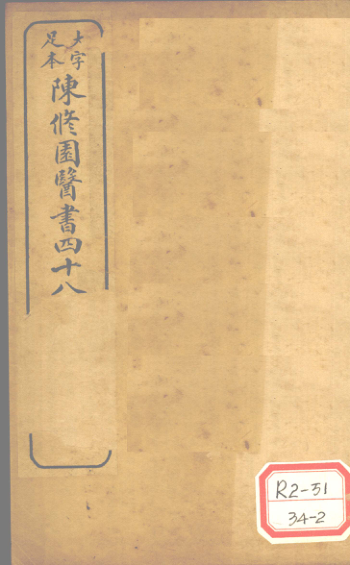 大字
足本
陳修園醫書四十八
R2-51
34-2